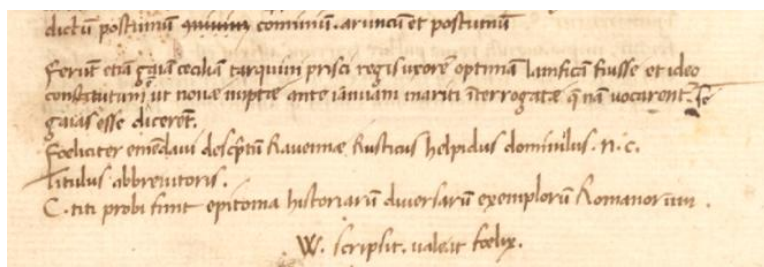 dictũ postumũ cominiũ. aruncũ et postumũ
Ferũt etiã gaiã ceciliã tarquini prisci regis uxorẽ optimã lanificã fuisse et ideo
constitutum ut nouæ nuptæ ante ianuam mariti ĩterrogatæ q̃ nam vocarent. se
gaias esse dicerẽt.
Foeliciter emẽdaui descp̃tũ Rauennæ Rusticus helpidus dominilus. n. c.
Titulus abbreuitoris.
C. titi probi finit epitoma historiarũ diuersarũ exemplorũ Romanorum.
W. scripsit. ualeat foelix.